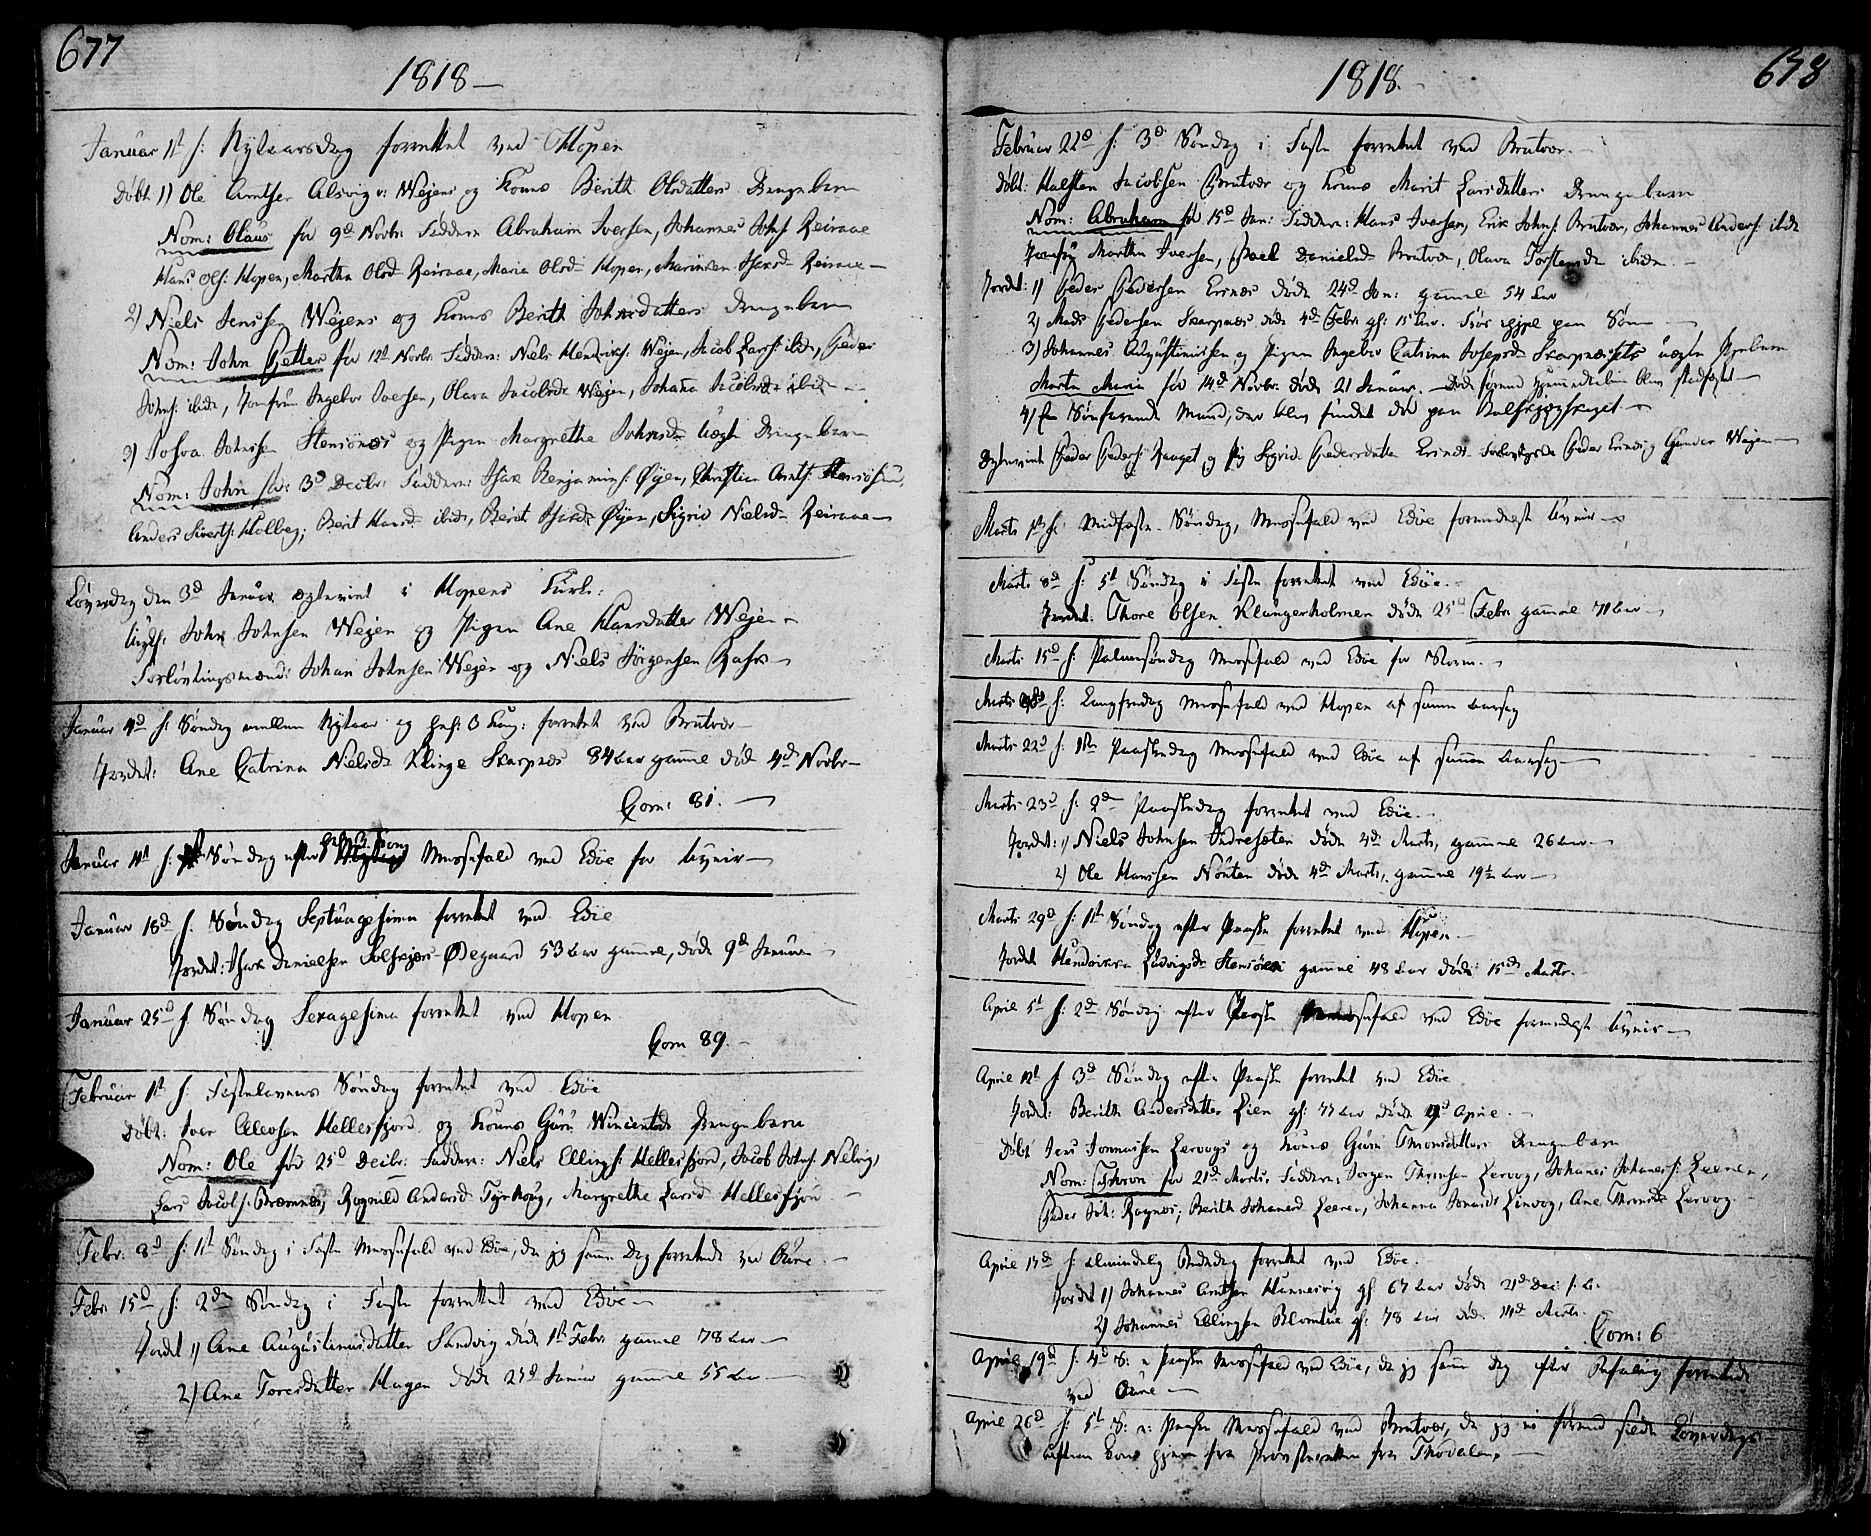 677
1818 —
Januar 1st f: Nytaarsdag forrettet ved Hopen
Døbt 1) Ole Arntsen Alsvig v: Wejens og Kones Berith Olsdatters Drengebarn
Nom: Olaus før 9d Novbr: Faddere Abraham Iversen, Johannes Johs: Reiraae
Hans Ols: Hopen, Martha Olsd Reiraae, Maria Olsd: Hopen, Marinken Isacsd: Reiraae —
2) Niels Jenssen Wejens og Kones Berith Johnsdatters Drengebarn
Nom: John Petter før 12t Novbr: Faddere: Niels Hendrichs: Wejen, Jacob Lars: ibid:, Peder
Johns: ibid:, Jomfrue Ingebor Iversen, Olava Jacobsdr Wejen, Johaña Jacobsdr ibid: —
3) Johnssen Stensønes og Pigen Margrethe Johnsdr Uægte Drengebarn
Nom: John før: 3d Decbr: Faddere: Isak Benjamins: Øyen, Christian Arnts:
Anders Siverts: Holberg, Berit Hansd: ibid:, Berit Isacsdr Øyen, Sigrid Nielsd: Reiraae —
Løverdag den 3d Januar ægteviet i Hopens Kirke:
Ungk: John Johnsen Wejen og Pigen Ane Hansdatter Wejen
Forlovningsmænd: Johan Johnsen Wejen og Niels Jörgensen
Januar 4d f: Søndag mellem Nytaar og Hel: 3 Kong: forrettet ved Brutvær
Jordet: Ane Catrina Nielsdr Klinge Skarpnæs 84 Aar gamle død 4d Novbr —
Com: 81. —
Januar 11t f: Søndag efter Hel: 3 Kong Messefald ved Edøe for Uveir —
Januar 18d f. Søndag Septuagesima forrettet ved Edøe
Jordet: Isak Danielsen Solskjær-Ødegaard 53 Aar gammel, døde 9d Januar
Januar 25d f. Søndag Sexagesima forrettet ved Hopen
Com 89. —
Februar 1st f. Fastelavens Søndag forrettet ved Edøe
Døbt: Iver Ellevsen Hellesfjord og Kones Guru Wincentsdr Drengebarn
Nom: Ole før 25d Decbr: Faddere: Niels Ellings: Hellesfjord, Jacob Johs:
Lars Jacobs: Bræmnes, Ragnild Andersd: Tyrhoug, Margrethe Larsd Hellesfjord —
Febr. 8d f. 1st Søndag i Faste Messefald ved Edøe, da jeg samme Dag forrettede ved Aure. —
Febr. 15d f: 2den Søndag i Faste forrettet ved Edøe —
Jordet 1) Ane Augustinusdatter Sandvig døde 1st Febr. gamle 78 Aar —
2) Ane Toresdatter Hagen døde 25d Januar gamle 55 Aar —
678
1818.
Februar 22d f: 3d Søndag i Faste forrettet ved Brutvær —
Døbt: Halsten Jacobsen Brutvær og Kones Marit Larsdatters Drengebarn
Nom: Abraham før 15d Jan: Faddere: Hans Iversen, Erik Johns: Brutvær, Johannes Anders: ibid:
Jomfru Martha Iversen, Danielsd: Brutvær, Olava Torstensdr ibidem. —
Jordet: 1) Peder Pedersen døde 24d Jan: gammel 54 Aar
2) Mads Pedersen Skarpnæs døde 4d Febr: gl: 15 Aar. paa Søen —
3) Johannes Augustinussen og Pigen Ingebor Catrina Josepsdr Skarpnæssets uægte Pigebarn
Marta Maria før 14d Novbr: døde 21 Januar. — Døde førend Hjemmedaaben blev stadfæstet —
4) En Søefarende Mand, der blev fundet død paa
Ægteviet Peder Peders: og Pig: Sigrid Pedersdatter Forlovningsmd: Peder og Gunder Wejen —
Marts 1st f. Midfaste-Søndag, Messefald ved Edøe formedelst Uveir —
Marts 8d f. 5t Søndag i Faste forrettet ved Edøe. —
Jordet: Thore Olsen Klungerholmen døde 25d Febr gammel 71 Aar —
Marts 15d f. Palmesøndag Messefald ved Edøe for Storm. —
Marts f. Langfredag Messefald ved Hopen af samme Aarsag
Marts 22d f. 1ste Paaskedag Messefald ved Edøe af samme Aarsag —
Marts 23d f. 2den Paaskedag forrettet ved Edøe —
Jordet: 1) Niels Johnsen døde 4de Marts, gammel 26 Aar —
2) Ole Hanssen døde 4d Marts, gammel 19½ Aar —
Marts 29d f: 1st Søndag efter Paaske forrettet ved Hopen —
Jordet Hendrikka Ludvigsdr gammel 48 Aar døde 15de Marts. —
April 5t f. 2d Søndag efter Paaske Messefald ved Edøe formedelst Uveir —
April 12t f 3d Søndag efter Paaske forrettet ved Edøe
Jordet: Berith Andersdatter Lien gl: 77 Aar døde April. —
Døbt Jens Jonnassen Lervogs og Kones Guru Thronsdatters Drengebarn
Nom: Thron før 21d Marts. Faddere: Jørgen Thronsen Lervog, Johanes Johanes: Leeren,
Peder Joh: Ragnæs, Berith Johanesd Leeren, Johanna Jonasdr, Ane Thronsdr Lervog. —
April 17d f Almindelig Bededag forrettet ved Edøe.
Jordet 1) Johannes Arntsen Hannesvig gl: 67 Aar døde 21d Dec: f: A:
2) Johannes Ellingsen gl: 78 Aar død 14d Marts
Com: 6
April 19d f. 4d S: e: Paaske Messefald ved Edøe, da jeg samme Dag efter Befaling forrettede
ved Aure —
April 26d f: 5t S: e: Paaske Messefald ved Brutvær, da jeg ei førend sildig Løverdags
Aften kom hjem fra Provsteretten fra